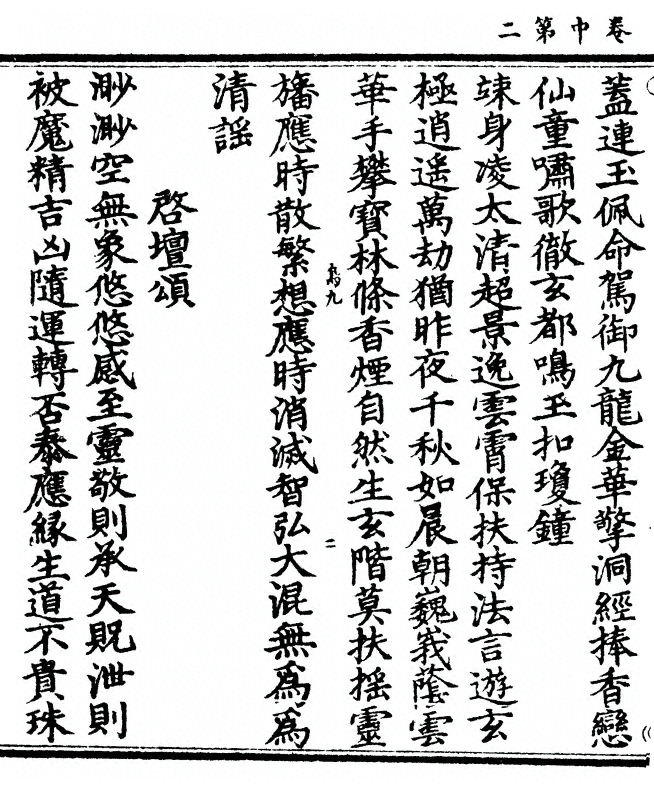 卷中第二
蓋連玉佩命駕御九龍金華擎洞經捧香戀
仙童嘯歌徹玄都鳴玉扣瓊鐘
竦身凌太清超景逸雲霄保扶持法言遊玄
極逍遥萬劫猶昨夜千秋如晨朝巍峩蔭雲
華手攀寳林條香煙自然生玄階莫扶摇靈
二
旛應時散繁想應時消滅智弘大混無為為
清謡
啓壇頌
渺渺空無象悠悠感至靈敬則承天貺泄則
被魔精吉凶隨運轉否泰應緣生道不貴珠